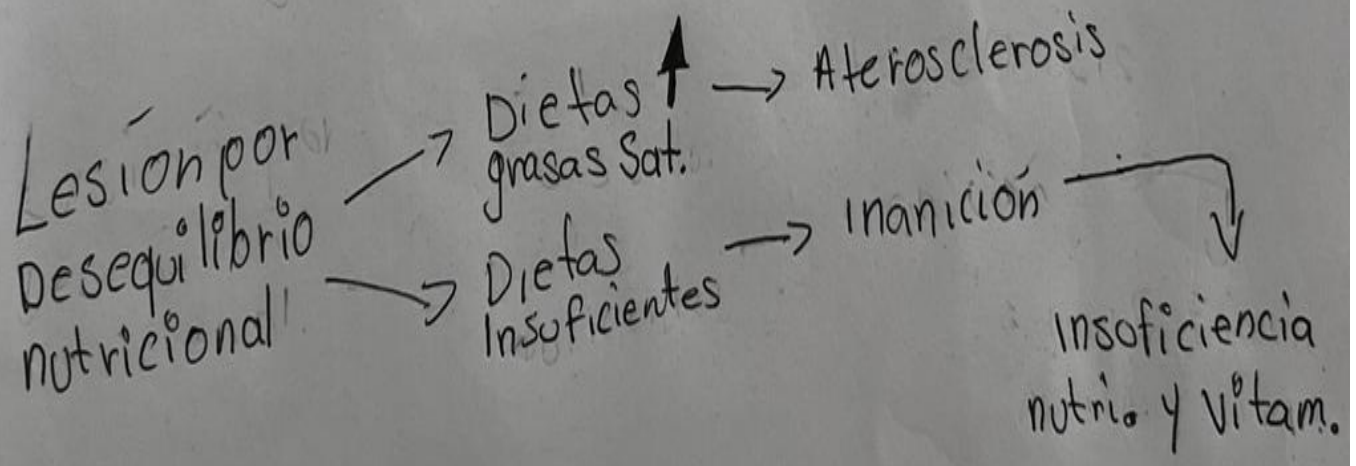 Lesión por
Desequilibrio
nutricional
Dietas ↑
grasas Sat.
→ Aterosclerosis
Dietas
Insuficientes
→ Inanición
Insuficiencia
nutri. y Vitam.